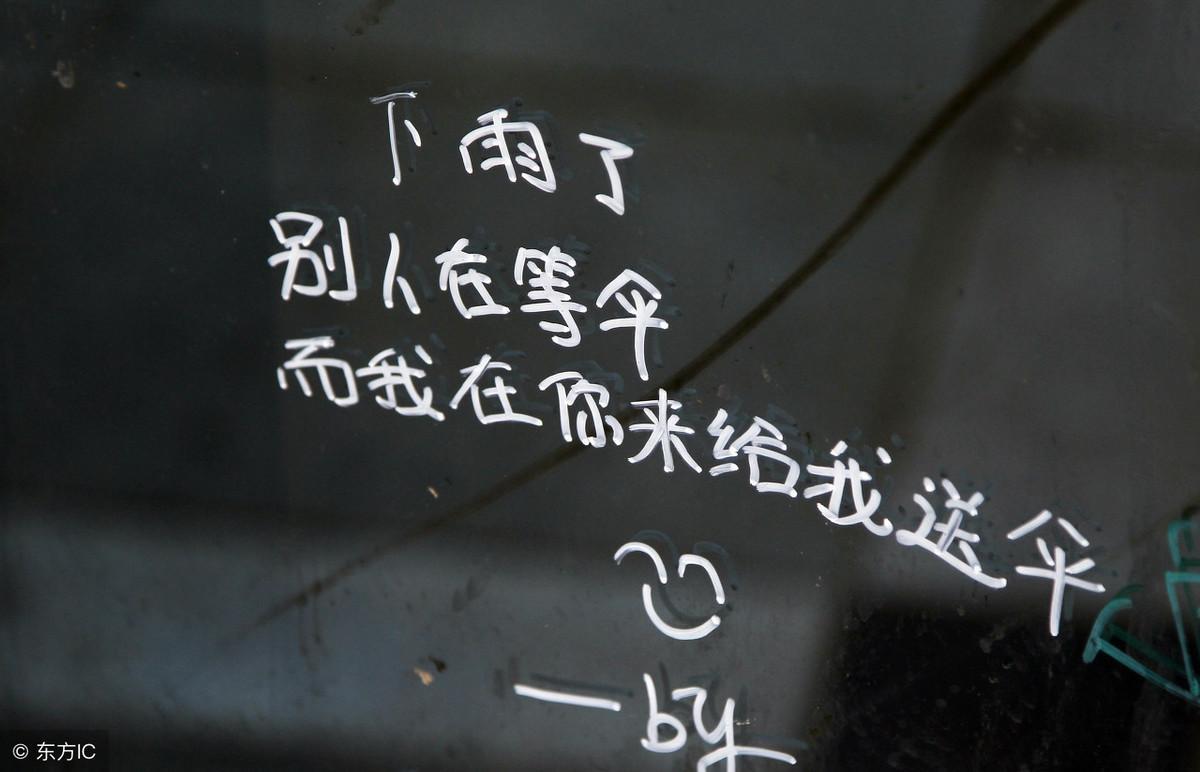 下雨了
别人在等伞
而我在你来给我送伞
—by
© 东方IC